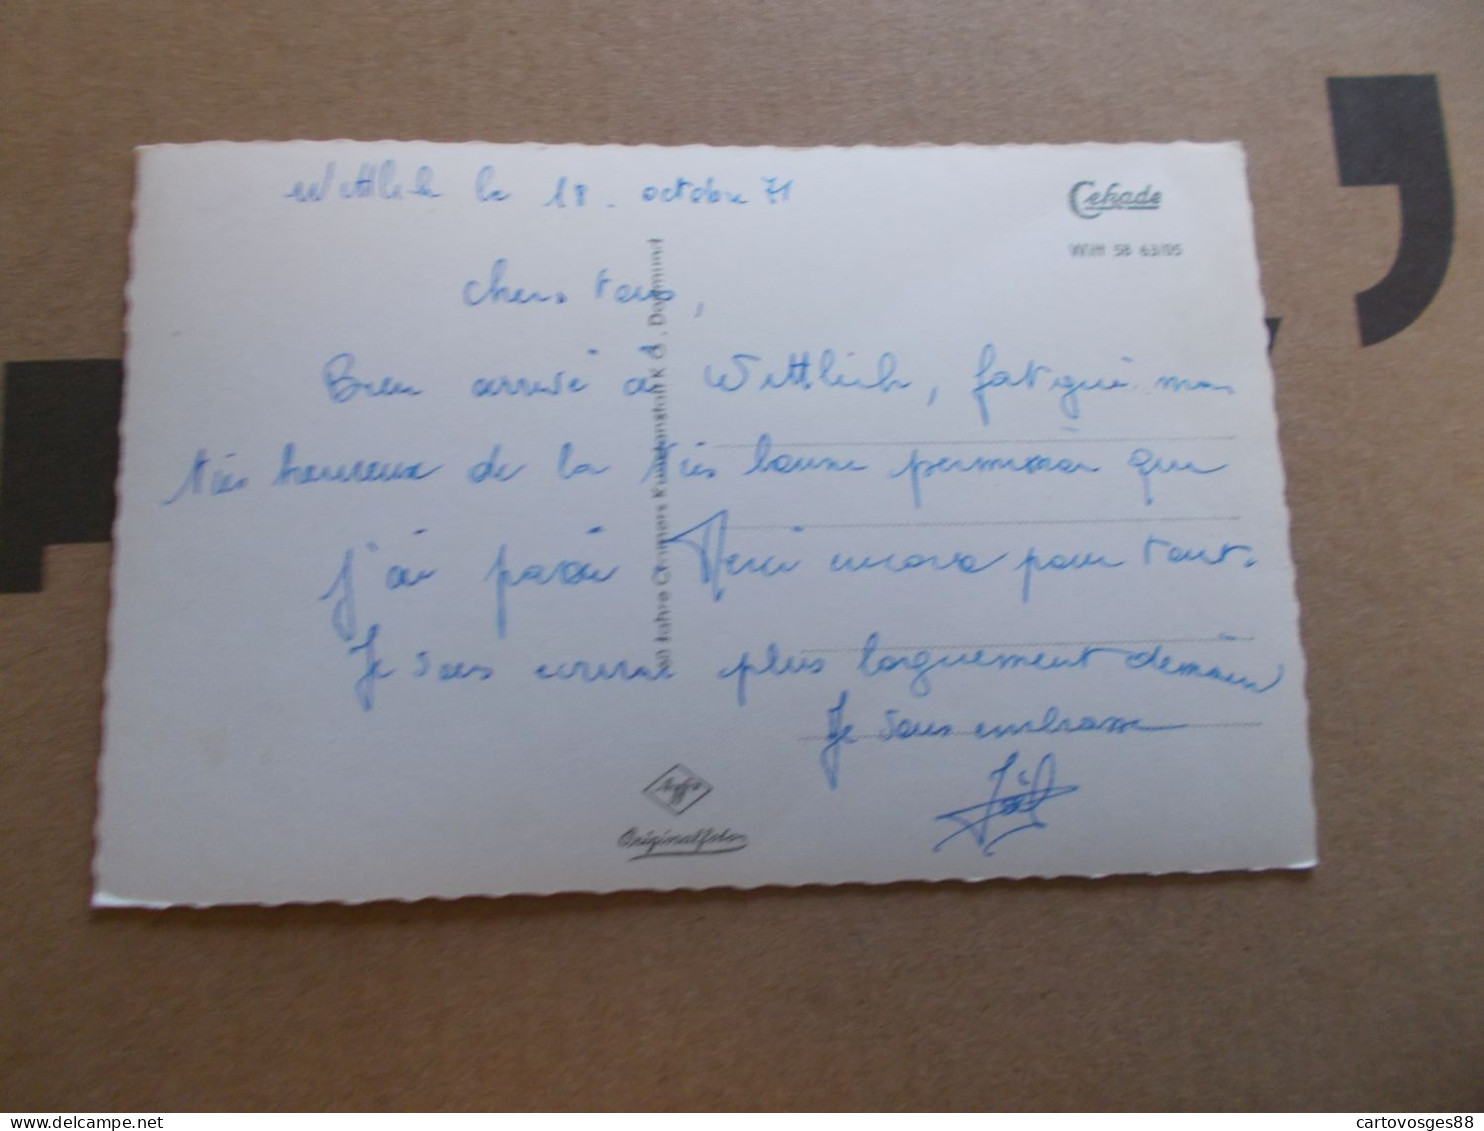 Wittlich le 18. octobre 71
Cekade
Witt 58 63/05
chers tous,
Bien arrivé à Wittlich, fatigué mais
très heureux de la très bonne permission que
j'ai passé Merci encore pour tout.
Je vous écrirai plus longuement demain
Je vous embrasse
Joël
50 Jahre Cramers Kunstanstalt KG., Dortmund
Agfa
Originalfoto
delcampe.net
cartovosges88